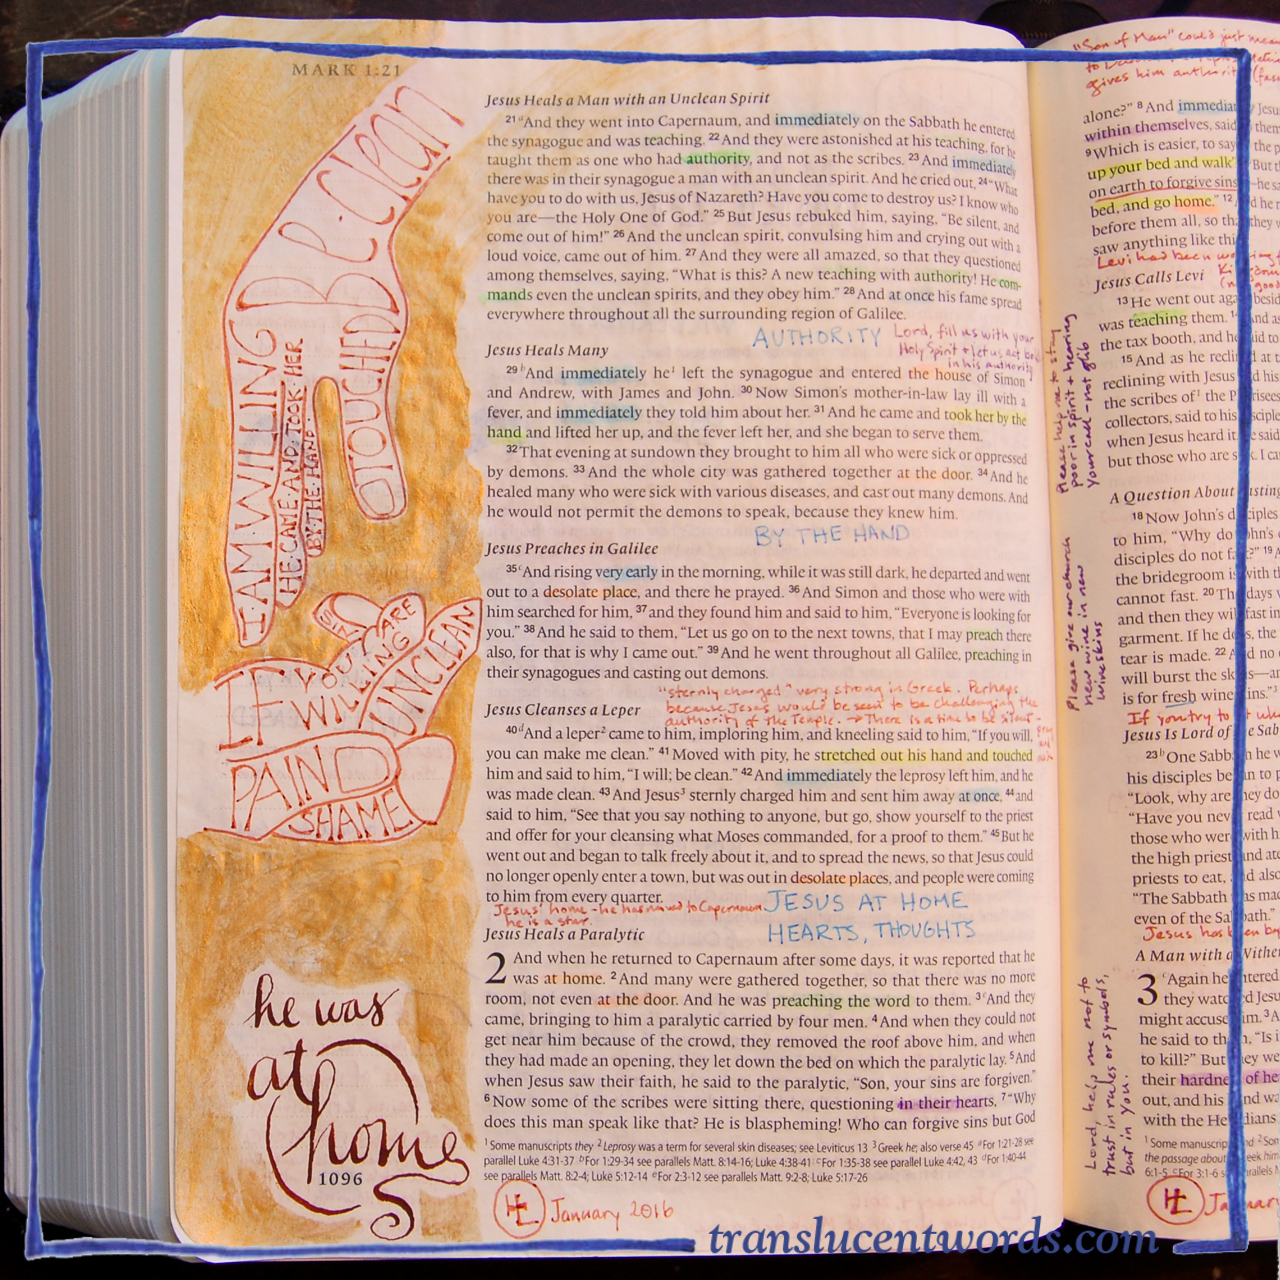 MARK 1:21
B·Clean
I AM WILLING
HE·CAME·AND·TOOK·HER
BY·THE·HAND·
TOUCHED
IF YOU ARE
WILLING
SIN
UNCLEAN
PAIN
SHAME
he was
at
home
1096
Jesus Heals a Man with an Unclean Spirit
21 a And they went into Capernaum, and immediately on the Sabbath he entered
the synagogue and was teaching. 22 And they were astonished at his teaching, for he
taught them as one who had authority, and not as the scribes. 23 And immediately
there was in their synagogue a man with an unclean spirit. And he cried out, 24 “What
have you to do with us, Jesus of Nazareth? Have you come to destroy us? I know who
you are—the Holy One of God.” 25 But Jesus rebuked him, saying, “Be silent, and
come out of him!” 26 And the unclean spirit, convulsing him and crying out with a
loud voice, came out of him. 27 And they were all amazed, so that they questioned
among themselves, saying, “What is this? A new teaching with authority! He com-
mands even the unclean spirits, and they obey him.” 28 And at once his fame spread
everywhere throughout all the surrounding region of Galilee.
AUTHORITY
Lord, fill us with your
Holy Spirit + let us act
in his authority
Jesus Heals Many
29 b And immediately he1 left the synagogue and entered the house of Simon
and Andrew, with James and John. 30 Now Simon's mother-in-law lay ill with a
fever, and immediately they told him about her. 31 And he came and took her by the
hand and lifted her up, and the fever left her, and she began to serve them.
32 That evening at sundown they brought to him all who were sick or oppressed
by demons. 33 And the whole city was gathered together at the door. 34 And he
healed many who were sick with various diseases, and cast out many demons. And
he would not permit the demons to speak, because they knew him.
BY THE HAND
Jesus Preaches in Galilee
35 c And rising very early in the morning, while it was still dark, he departed and went
out to a desolate place, and there he prayed. 36 And Simon and those who were with
him searched for him, 37 and they found him and said to him, “Everyone is looking for
you.” 38 And he said to them, “Let us go on to the next towns, that I may preach there
also, for that is why I came out.” 39 And he went throughout all Galilee, preaching in
their synagogues and casting out demons.
"sternly charged" very strong in Greek. Perhaps
because Jesus would be seen to be challenging the
authority of the Temple. → There is a time to be silent -
Jesus Cleanses a Leper
40 d And a leper2 came to him, imploring him, and kneeling said to him, “If you will,
you can make me clean.” 41 Moved with pity, he stretched out his hand and touched
him and said to him, “I will; be clean.” 42 And immediately the leprosy left him, and he
was made clean. 43 And Jesus3 sternly charged him and sent him away at once, 44 and
said to him, “See that you say nothing to anyone, but go, show yourself to the priest
and offer for your cleansing what Moses commanded, for a proof to them.” 45 But he
went out and began to talk freely about it, and to spread the news, so that Jesus could
no longer openly enter a town, but was out in desolate places, and people were coming
to him from every quarter.
Jesus' home - he has moved to Capernaum
he is a star.
JESUS AT HOME
HEARTS, THOUGHTS
Jesus Heals a Paralytic
2 And when he returned to Capernaum after some days, it was reported that he
was at home. 2 And many were gathered together, so that there was no more
room, not even at the door. And he was preaching the word to them. 3 e And they
came, bringing to him a paralytic carried by four men. 4 And when they could not
get near him because of the crowd, they removed the roof above him, and when
they had made an opening, they let down the bed on which the paralytic lay. 5 And
when Jesus saw their faith, he said to the paralytic, “Son, your sins are forgiven.”
6 Now some of the scribes were sitting there, questioning in their hearts, 7 “Why
does this man speak like that? He is blaspheming! Who can forgive sins but God
1 Some manuscripts they 2 Leprosy was a term for several skin diseases; see Leviticus 13 3 Greek he; also verse 45 a For 1:21-28 see
parallel Luke 4:31-37 b For 1:29-34 see parallels Matt. 8:14-16; Luke 4:38-41 c For 1:35-38 see parallel Luke 4:42, 43 d For 1:40-44
see parallels Matt. 8:2-4; Luke 5:12-14 e For 2:3-12 see parallels Matt. 9:2-8; Luke 5:17-26
HL January 2016
"Son of Man" could just mean
gives him authority
Please help me to stay
poor in spirit + hearing
your call - not glib
Please give our church
new wine in new
wineskins
Lord, help me not to
trust in rules or symbols,
but in you.
alone?” 8 And immediately Jesus
within themselves, said them
9 Which is easier, to say the p
up your bed and walk’ But th
on earth to forgive sins he s
bed, and go home.” 12 d he r
before them all, so that they w
saw anything like this
Levi had been working
Jesus Calls Levi
13 He went out again beside
was teaching them. 14 nd as
the tax booth, and he id to
15 And as he reclined at t
reclining with Jesus d his
the scribes of1 the Pharisees
collectors, said to his disciple
when Jesus heard it, he said
but those who are sick. I ca
A Question About Fasting
18 Now John's disciples
to him, “Why do John's
disciples do not fast?” 19
the bridegroom is with th
cannot fast. 20 The days
and then they will fast in
garment. If he does, the
tear is made. 22 And no
will burst the skins—an
is for fresh wineskins.”
If you try to
Jesus Is Lord of the Sab
23 h One Sabbath he w
his disciples began to p
“Look, why are they do
“Have you never read
those who were with h
the high priest, and ate
priests to eat, and also
“The Sabbath was mad
even of the Sabbath.”
Jesus has been
A Man with a Wither
3 Again he entered
they watched Jesu
might accuse him. 3 A
he said to them, “Is i
to kill?” But they we
their hardness of he
out, and his hand wa
with the Herodians
1 Some manuscripts
the passage about
6:1-5 g For 3:1-6
HL January
translucentwords.com